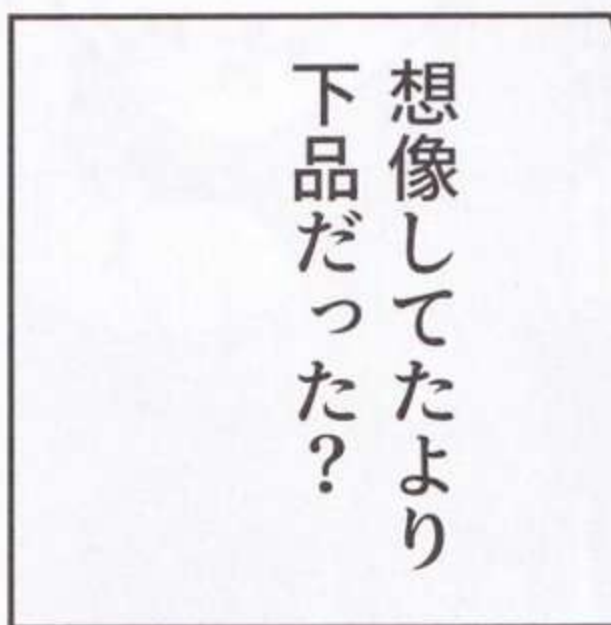 想像してたより
下品だった？